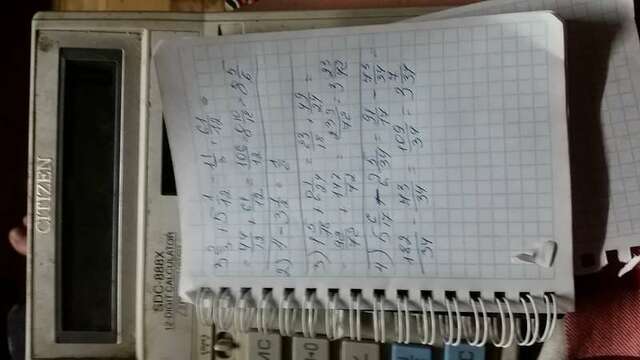 CITIZEN
SDC-888X
12 DIGIT CALCULATOR
3 2/3 + 5 1/12 = 11/3 + 61/12 =
= 44/12 + 61/12 = 106/12 = 8 10/12 = 8 5/6
2) 4 - 3 1/2 = 1/2
3) 1 5/18 + 2 1/24 = 23/18 + 49/24 =
= 92/72 + 147/72 = 239/72 = 3 23/72
4) 5 6/17 - 2 5/34 = 91/17 - 73/34 =
182/34 - 73/34 = 109/34 = 3 7/34